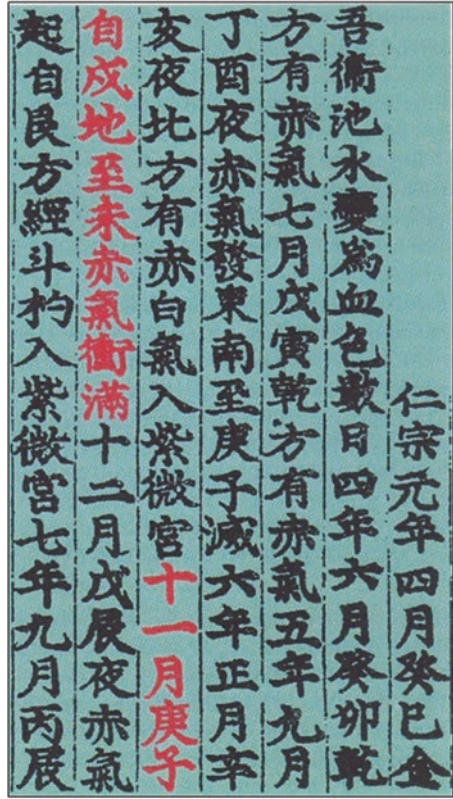 仁宗元年四月癸巳金
吾衛池水變爲血色數日四年六月癸卯乾
方有赤氣七月戊寅乾方有赤氣五年九月
丁酉夜赤氣發東南至庚子滅六年正月辛
亥夜北方有赤白氣入紫微宮十一月庚子
自戌地至未赤氣衝滿十二月戊辰夜赤氣
起自艮方經斗杓入紫微宮七年九月丙辰